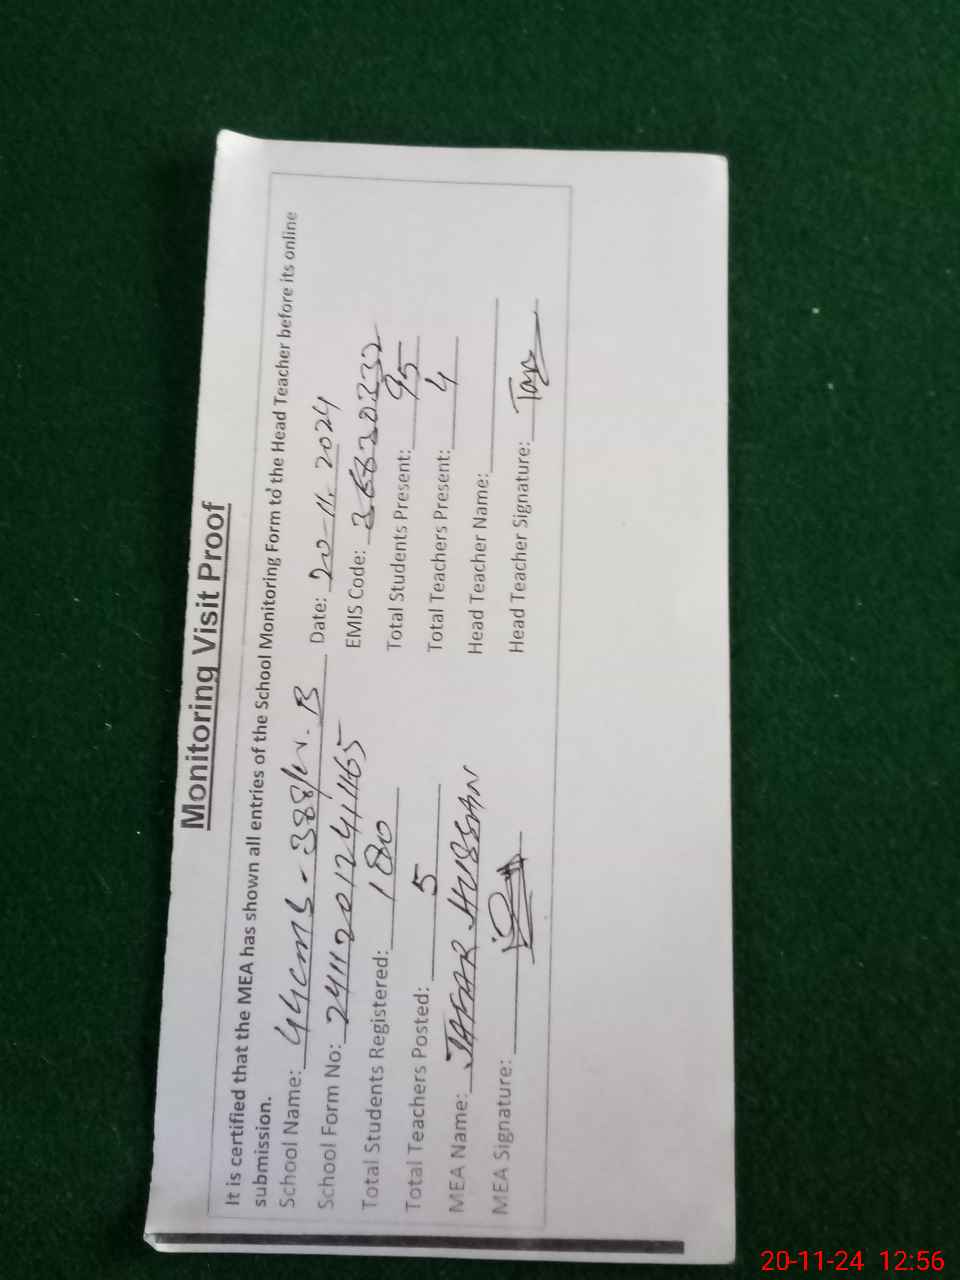 Monitoring Visit Proof
It is certified that the MEA has shown all entries of the School Monitoring Form to the Head Teacher before its online
submission.
School Name: 388/W.B Date: 20-11-2024
School Form No: EMIS Code:
Total Students Registered: 180 Total Students Present: 95
Total Teachers Posted: 5 Total Teachers Present: 4
MEA Name: JAFAR HUSSAN Head Teacher Name:
MEA Signature: Head Teacher Signature:
20-11-24 12:56